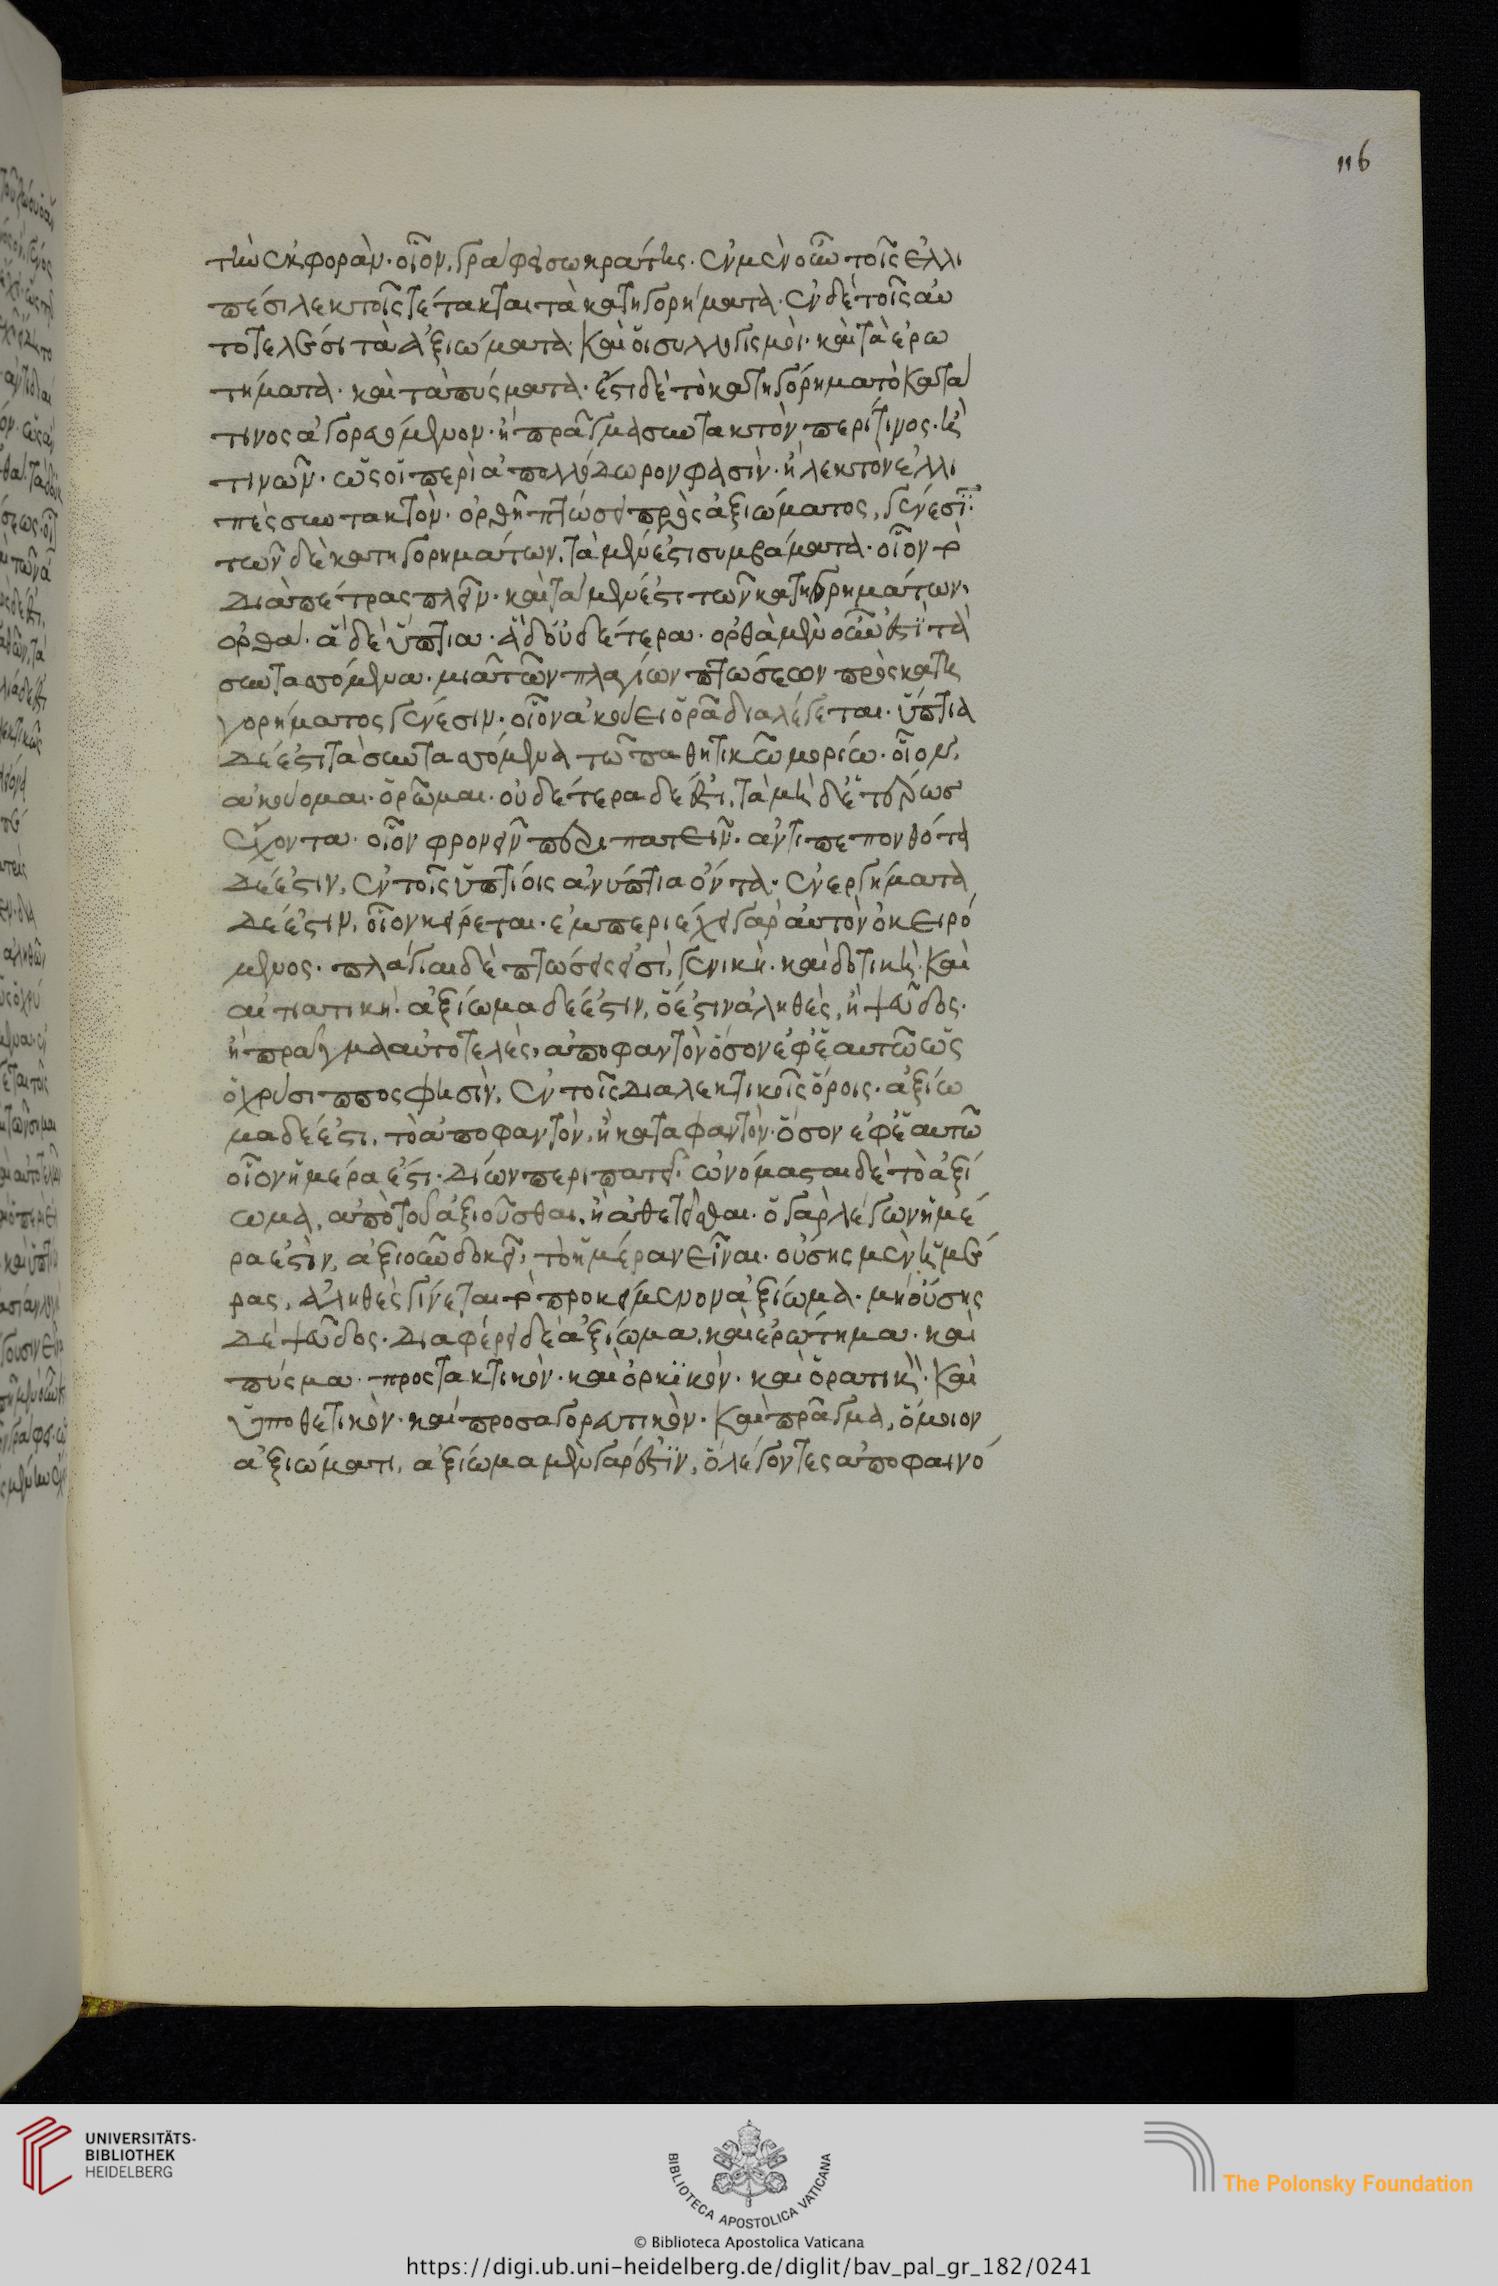 116
τὴν ἐκφορὰν· οἷον, γράφει σωκράτης. ἐν μὲν οὖν τοῖς ἐλλι
πέσι λεκτοῖς τέτακται τὰ κατηγορήματα. ἐν δὲ τοῖς αὐ
τοτελέσι τὰ ἀξιώματα. καὶ οἱ συλλογισμοὶ· καὶ τὰ ἐρω
τήματα. καὶ τὰ πύσματα. ἔστι δὲ τὸ κατηγόρημα τὸ κατά
τινος ἀγορευόμενον. ἢ πρᾶγμα συντακτὸν περί τινος. ἤ
τινῶν. ὡς οἱ περὶ ἀπολλόδωρον φασὶν. ἢ λεκτὸν ἐλλι
πὲς συντακτὸν. ὀρθῇ πτώσει πρὸς ἀξιώματος, γένεσϊ.
τῶν δὲ κατηγορημάτων, τὰ μέν ἐστι συμβάματα. οἷον τὸ
διὰ πέτρας πλεῖν. καὶ τὰ μέν ἐστι τῶν κατηγορημάτων,
ὀρθά. ἃ δὲ ὕπτια. ἃ δ' οὐδέτερα. ὀρθὰ μὲν οὖν ἐστϊ τὰ
συντασσόμενα. μιᾷ τῶν πλαγίων πτώσεων πρὸς κατη
γορήματος γένεσιν. οἷον ἀκούει ὁρᾷ διαλέγεται. ὕπτια
δέ ἐστι τὰ συντασσόμενα τῷ παθητικῷ μορίῳ. οἷον,
ἀκούομαι. ὁρῶμαι. οὐδέτερα δέ ἐστι, τὰ μηδετέρως
ἔχοντα. οἷον φρονεῖν περιπατεῖν. ἀντιπεπονθότα
δέ ἐστιν, ἐν τοῖς ὑπτίοις ἀνύπτια ὄντα. ἐνεργήματα
δέ ἐστιν, οἷον κείρεται. ἐμπεριέχει γὰρ αὐτὸν ὁ κειρό
μενος. πλάγιαι δὲ πτώσεις εἰσὶ, γενικὴ. καὶ δοτικὴ. καὶ
αἰτιατικὴ. ἀξίωμα δέ ἐστιν, ὅ ἐστιν ἀληθὲς, ἢ ψεῦδος.
ἢ πρᾶγμα αὐτοτελὲς, ἀποφαντὸν ὅσον ἐφ' ἑαυτῷ ὡς
ὁ χρύσιππος φησὶν, ἐν τοῖς διαλεκτικοῖς ὅροις. ἀξίω
μα δέ ἐστι, τὸ ἀποφαντὸν, ἢ καταφαντὸν. ὅσον ἐφ' ἑαυτῷ
οἷον ἡμέρα ἐστί. δίων περιπατεῖ. ὠνόμασται δὲ τὸ ἀξί
ωμα, ἀπὸ τοῦ ἀξιοῦσθαι, ἢ ἀθετεῖσθαι. ὁ γὰρ λέγων ἡμέ
ρα ἐστὶν, ἀξιοῦν δοκεῖ, τὸ ἡμέραν εἶναι. οὔσης μὲν ἡμέ
ρας, ἀληθὲς γίνεται τὸ προκείμενον ἀξίωμα. μὴ οὔσης
δὲ ψεῦδος. διαφέρει δὲ ἀξίωμα, καὶ ἐρώτημα. καὶ
πύσμα. προστακτικὸν. καὶ ὁρκϊκὸν. καὶ ὁρατικὴ. καὶ
ὑποθετικὸν. καὶ προσαγορευτικὸν. καὶ πρᾶγμα, ὅμοιον
ἀξιώματι, ἀξίωμα μὲν γάρ ἐστϊν, ὃ λέγοντες ἀποφαινό
UNIVERSITÄTS-
BIBLIOTHEK
HEIDELBERG
BIBLIOTECA APOSTOLICA VATICANA
The Polonsky Foundation
© Biblioteca Apostolica Vaticana
https://digi.ub.uni-heidelberg.de/diglit/bav_pal_gr_182/0241